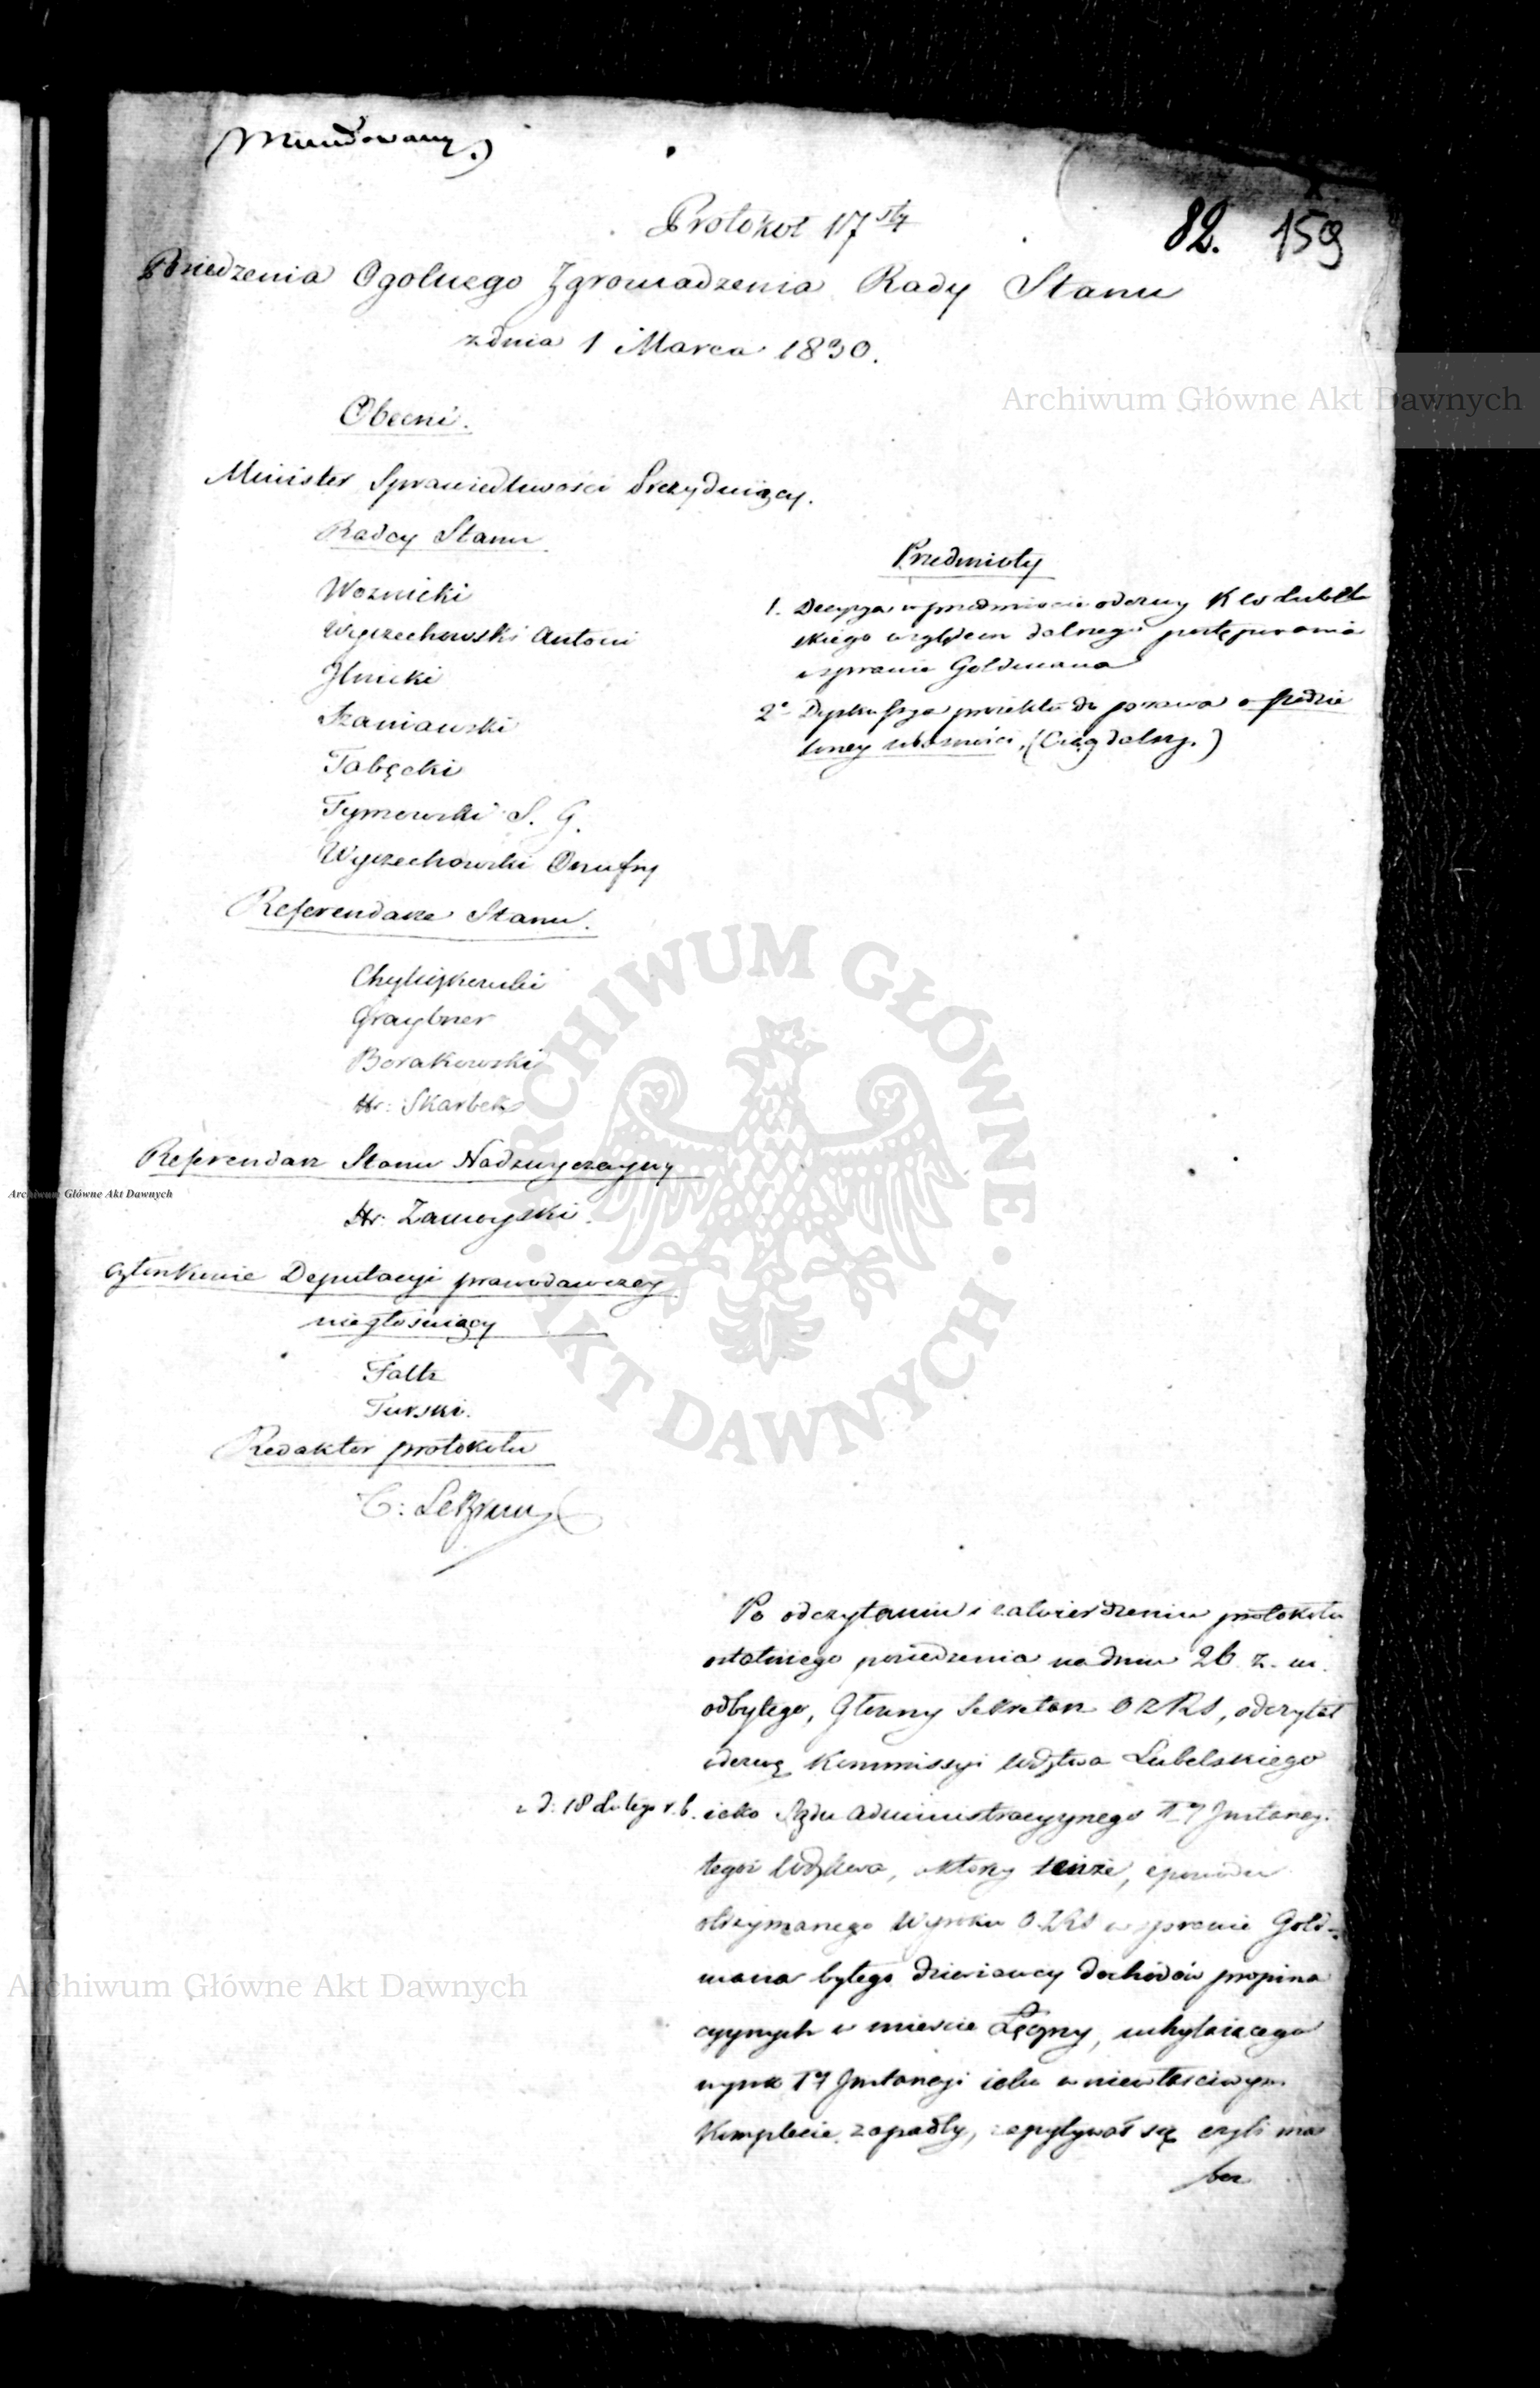 Mundowany.
82. 159
Protokół 17sty
Posiedzenia Ogolnego Zgromadzenia Rady Stanu
z dnia 1 Marca 1830.
Obecni.
Minister Sprawiedliwości Prezyduiący.
Radcy Stanu
Woznicki
Wyczechowski Antoni
Jlnicki
Szaniawski
Tobęcki
Tymowski S. G.
Wyczechowski Onufry
Referendarze Stanu.
Graybner
Borakowski
Hr: Skarbek
Referendarz Stanu Nadzwyczayny
Hr: Zamoyski
Członkowie Deputacyi prawodawczey
niegłosuiący
Faltz
Turski.
Redaktor protokołu
C: LeBrun
Przedmioty
1. Decyzya w przedmiocie odezwy K W Lubel
skiego względem dalszego postępowania
w sprawie Goldmana
2o Dyskussya proiektu do prawa o rodzie
loney własności, (Ciąg dalszy.)
Po odczytaniu i zatwierdzeniu protokołu
ostatniego posiedzenia na dniu 26 z. m.
odbytego, Głowny Sekretarz OZRS, odczytał
odezwę Kommissyi Wdztwa Lubelskiego
z d: 18 Lutego r. b. iako Sądu Administracyynego Iy Jnstancyi
tegoż Wdztwa, w ktorey tenże, z powodu
otrzymanego Wyroku OZRS w sprawie Gold-
mana byłego dzierzawcy dochodów propina
cyynych w mieście Łęczny, uchylaiącego
wyrok Iy Jnstancyi iako w niewłaściwym
Komplecie zapadły, zapytywał się czyli ma
Archiwum Główne Akt Dawnych
Archiwum Główne Akt Dawnych
Archiwum Główne Akt Dawnych
ARCHIWUM GŁÓWNE · AKT DAWNYCH ·